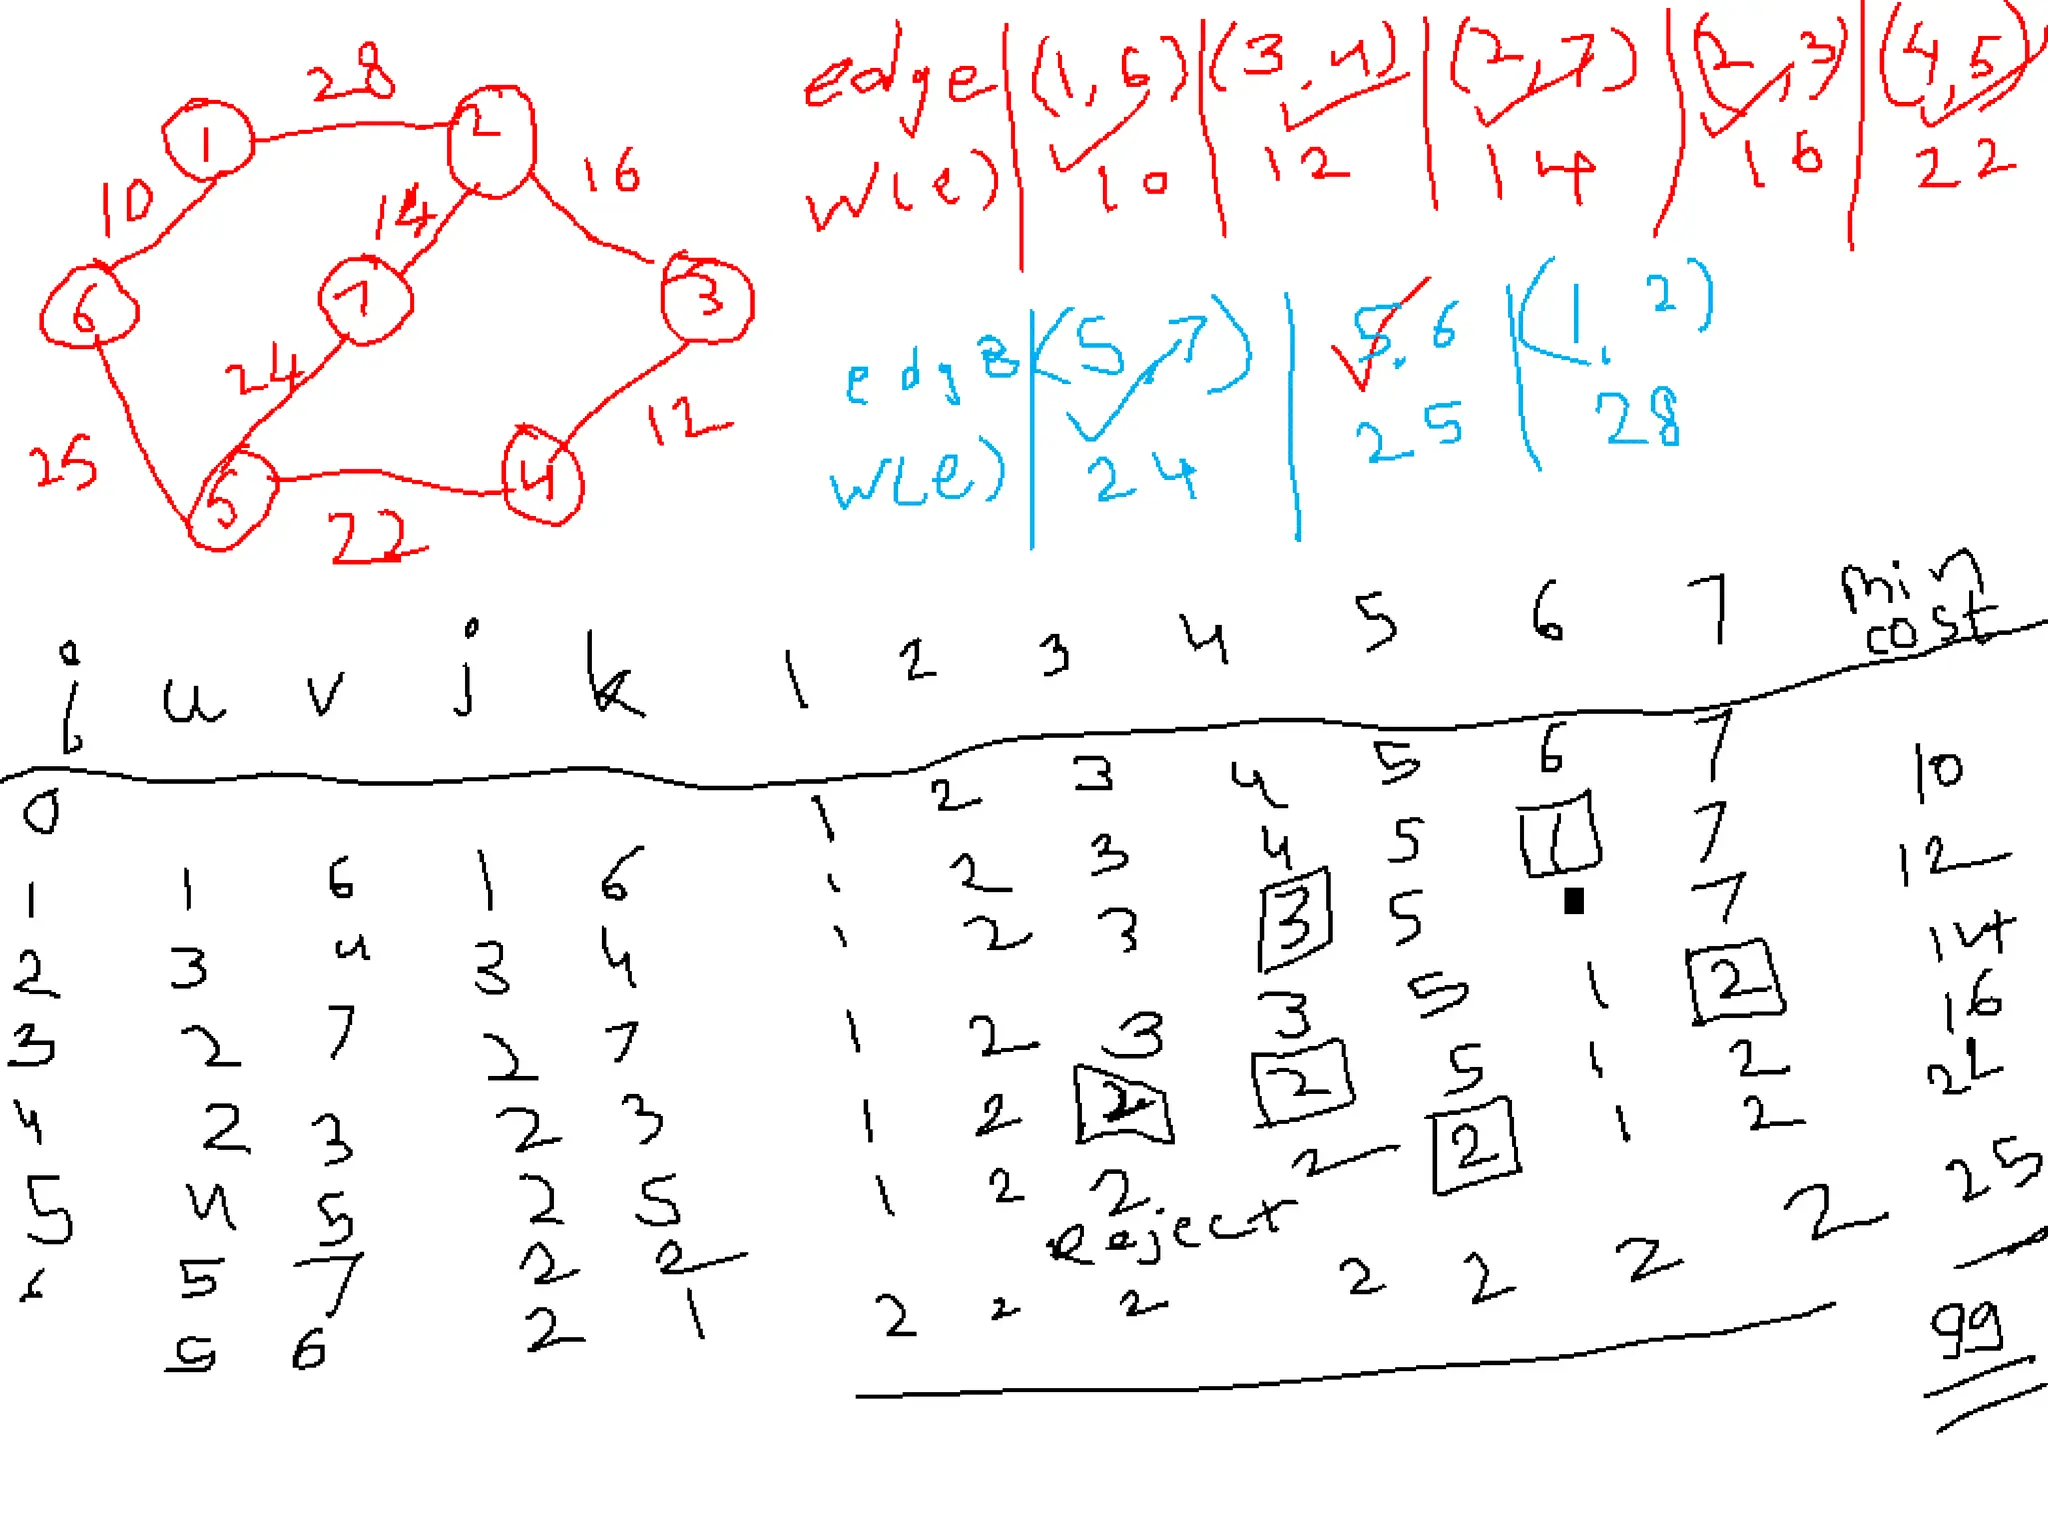 28
1 2
16
10
14
6 7 3
24
12
25
5 4
22
edge (1,6) (3,4) (2,7) (2,3) (4,5)
w(e) 10 12 14 16 22
edge (5,7) 5,6 (1,2)
w(e) 24 25 28
i u v j k 1 2 3 4 5 6 7 min cost
0 1 2 3 4 5 6 7 10
1 1 6 1 6 1 2 3 4 5 1 7 12
2 3 4 3 4 1 2 3 3 5 7 14
3 2 7 2 7 1 2 3 3 5 1 2 16
4 2 3 2 3 1 2 2 2 5 1 2 22
5 4 5 2 5 1 2 2 2 2 1 2 25
5 7 2 2 Reject
5 6 2 1 2 2 2 2 2 2 2
99